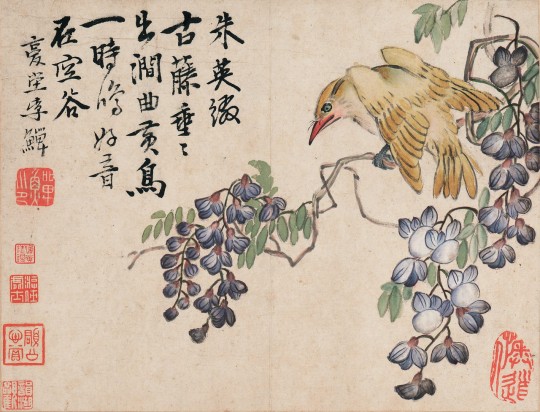 朱英綴
古藤垂〻
出澗曲黃鳥
一時鳴好音
在空谷
復堂李鱓